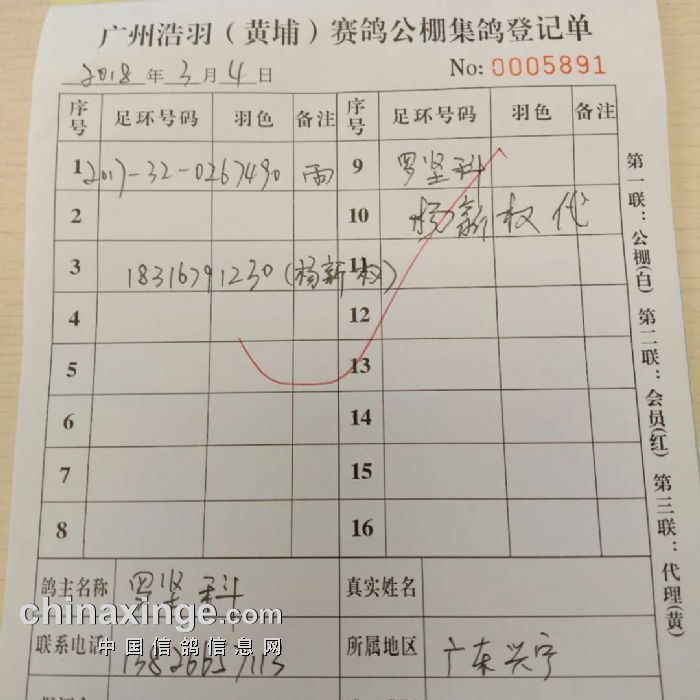 广州浩羽（黄埔）赛鸽公棚集鸽登记单
2018 年 3 月 4 日 No: 0005891
序号 足环号码 羽色 备注 序号 足环号码 羽色 备注
1 2017-32-0267490 雨 9 罗坚科
2 10 杨新权代
3 18316791230（杨新权） 11
4 12
5 13
6 14
7 15
8 16
鸽主名称 罗坚科 真实姓名
联系电话 13826657113 所属地区 广东兴宁
第一联：公棚(白) 第二联：会员(红) 第三联：代理(黄)
chinaxinge.com
中国信鸽信息网